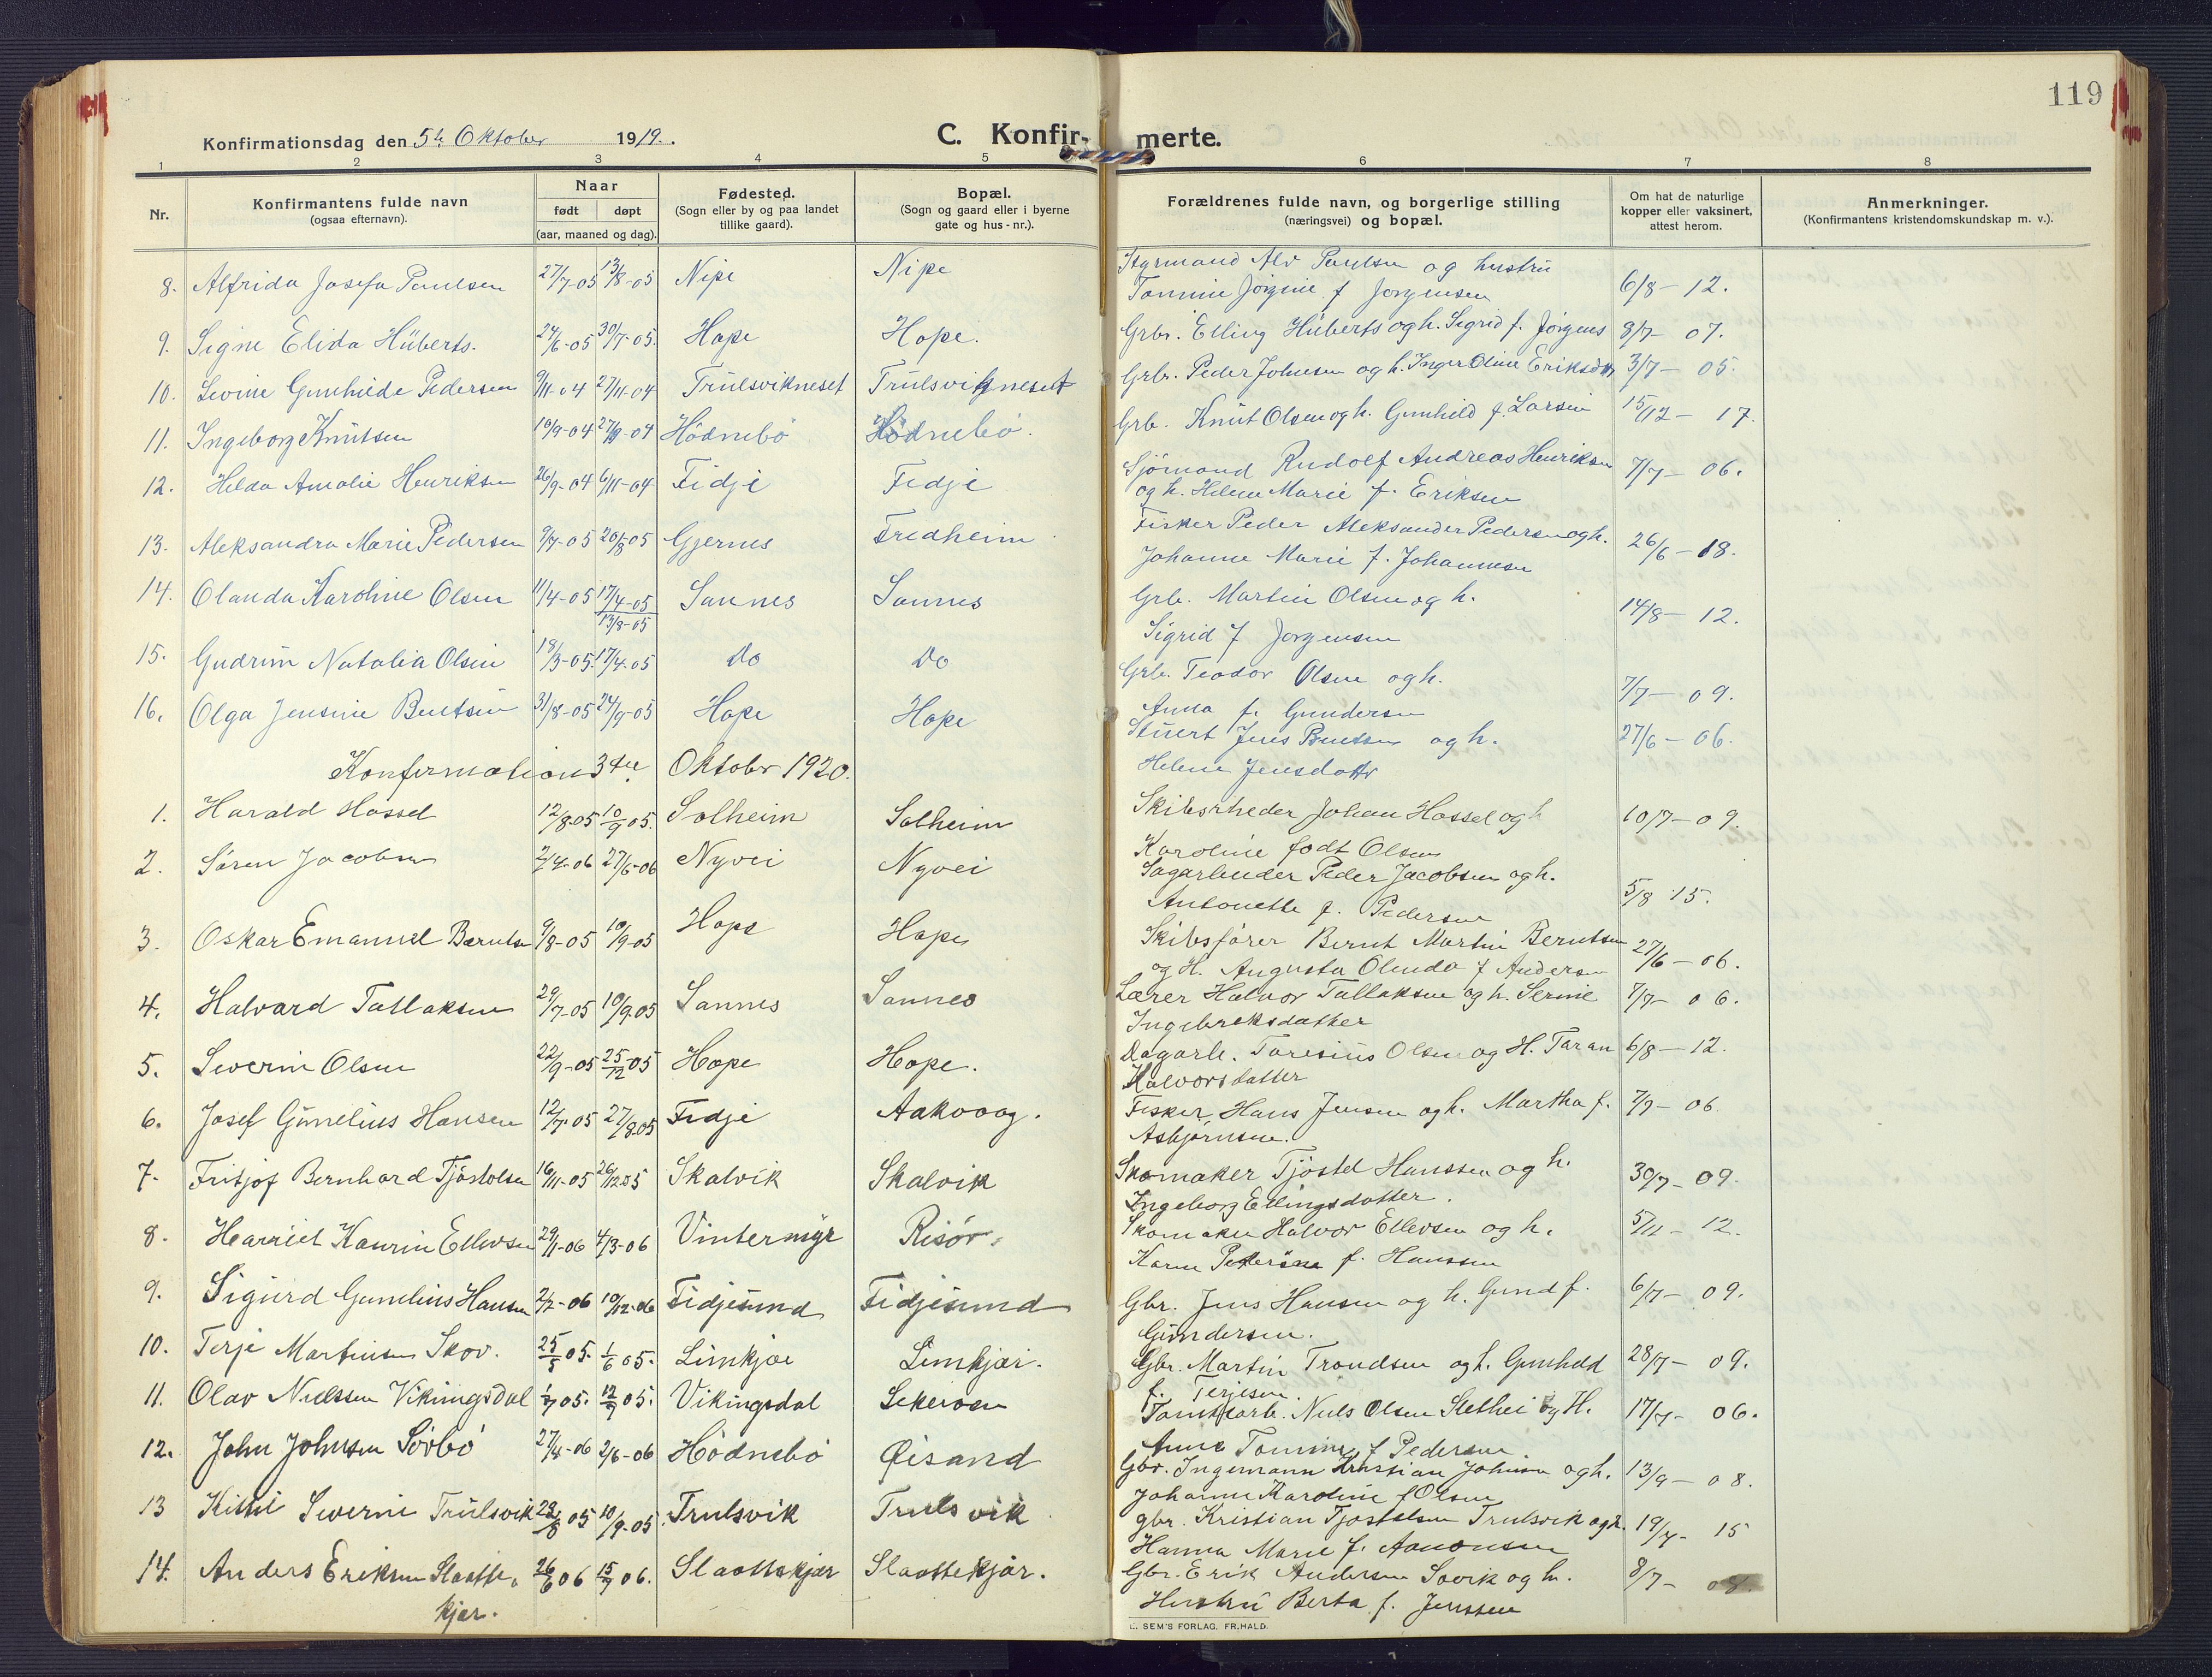 119
Konfirmationsdag den 5te Oktober 1919.
C. Konfir- merte.
1 2 3 4 5 6 7 8
Nr.
Konfirmantens fulde navn
(ogsaa efternavn).
Naar
født døpt
(aar, maaned og dag).
Fødested.
(Sogn eller by og paa landet
tillike gaard).
Bopæl.
(Sogn og gaard eller i byerne
gate og hus-nr.).
Forældrenes fulde navn, og borgerlige stilling
(næringsvei) og bopæl.
Om hat de naturlige
kopper eller vaksinert,
attest herom.
Anmerkninger.
(Konfirmantens kristendomskundskap m. v.).
8. Alfrida Josefa Paulsen 27/7-05 13/8-05 Nipe Nipe Styrmand Alv Paulsen og hustru
Tomine Jørgine f Jorgensen 6/8-12.
9. Signe Elida Hüberts. 24/6-05 30/7-05. Hope Hope. Grbr. Elling Hüberts og h. Sigrid f. Jörgens 8/7-07.
10. Levine Gunhilde Pedersen 9/11-04 27/11-04 Trulsvikneset Trulsvikneset Grbr. Peder Johnsen og h. Inger Oline Eriksdtr 3/7-05.
11. Ingeborg Knutsen 10/9-04 27/9-04 Hödnebö Hödnebö. Grb. Knut Olsen og h. Gunhild f. Larsen 15/12-17.
12. Helda Amalie Henriksen 26/9-04 6/11-04 Fidje Fidje Sjömand Rudolf Andreas Henriksen
og h. Helene Marie f. Eriksen 7/7-06.
13. Aleksandra Marie Pedersen 9/7-05 20/8-05 Gjernes Fredheim Fisker Peder Aleksander Pedersen og h.
Johanne Marie f. Johannesen 26/6-18.
14. Olanda Karoline Olsen 11/4-05 17/4-05
13/8-05 Sannes Sannes Grb. Martin Olsen og h.
Sigrid f Jorgensen 14/8-12.
15. Gudrun Natalia Olsen 18/3-05. 17/4-05 Do Do Grb. Teodor Olsen og h.
Anna f. Gundersen 7/7-09.
16. Olga Jensine Bentsen 31/8-05 24/9-05 Hope Hope Stuert Jens Bentsen og h.
Helene Jensdattr 27/6-06.
Konfirmation 3die Oktober 1920.
1. Harald Hassel 12/8-05 10/9 05. Solheim Solheim Skibsrheder Johan Hassel og h
Karoline födt Olsen 10/7-09.
2. Sören Jacobsen 2/4-06 27/6-06 Nyvei Nyvei Sagarbeider Peder Jacobsen og h.
Antonette f. Pedersen 5/8 15.
3. Oskar Emanuel Berntsen 9/8-05 10/9-05 Hope Hope Skibsförer Bernt Martin Berntsen
og H. Augusta Olinda f Andersen 27/6-06.
4. Halvard Tallaksen 29/7-05 10/9 05 Sannes Sannes Lærer Halvor Tallaksen og h. Serine
Ingebreksdatter 7/7-06.
5. Severin Olsen 22/9-05 25/12 05 Hope Hope. Dagarb. Taresius Olsen og H. Taran
Halvorsdatter 6/8-12.
6. Josef Gunelius Hansen 12/7-05 27/8 05 Fidje Aakvaag. Fisker Hans Jensen og h. Martha f.
Asbjørnsen. 7/7-06
7. Fritjof Bernhard Tjöstolsen 16/11-05 26/12 05 Skalvik Skalvik Skomaker Tjöstel Hanssen og h.
Ingeborg Ellingsdatter. 30/7-09.
8. Harriet Kaurin Ellevsen 29/1-06 4/3-06 Vintermyr Risör. Skomaker Halvor Ellevsen og h.
Karen f. Hanssen 5/11-12.
9. Sigurd Gunelius Hansen 2/2-06 10/12-06 Fidjesund Fidjesund Gbr. Jens Hansen og h. Gund f.
Gundersen. 6/7-09.
10. Terje Martinsen Skov. 25/5 05. 1/6 05. Limkjær Limkjær. Gbr. Martin Trondsen og h. Gunhild
f. Terjesen. 28/7-09.
11. Olav Nielssen Vikingsdal 1/7 05. 12/9 05. Vikingsdal Nils Olsen Slethei og H.
Anne Tomine f Pedersen. 17/7-06.
12. John Johnsen Sörbö 27/4-06 2/6-06 Hödnebö Öisand Gbr. Ingemann Kristian Johnsen og h.
Johanne Karoline f Olsen 13/9-08.
13 Kittil Severin Trulsvik 23/8 05 10/9-05 Trulsvik Trulsvik gbr. Kristian Tjostolsen Trulsvik og h.
Hanna Marie f. Aanonsen 19/7-15
14. Anders Eriksen Slaatte-
kjær. 26/6 06 15/7 06. Slaattekjær Slaattekjær. Gbr. Erik Andersen Sövik og h.
Hustru Berta f. Jenssen 8/7-08.
E. SEM'S FORLAG, FR.HALD.